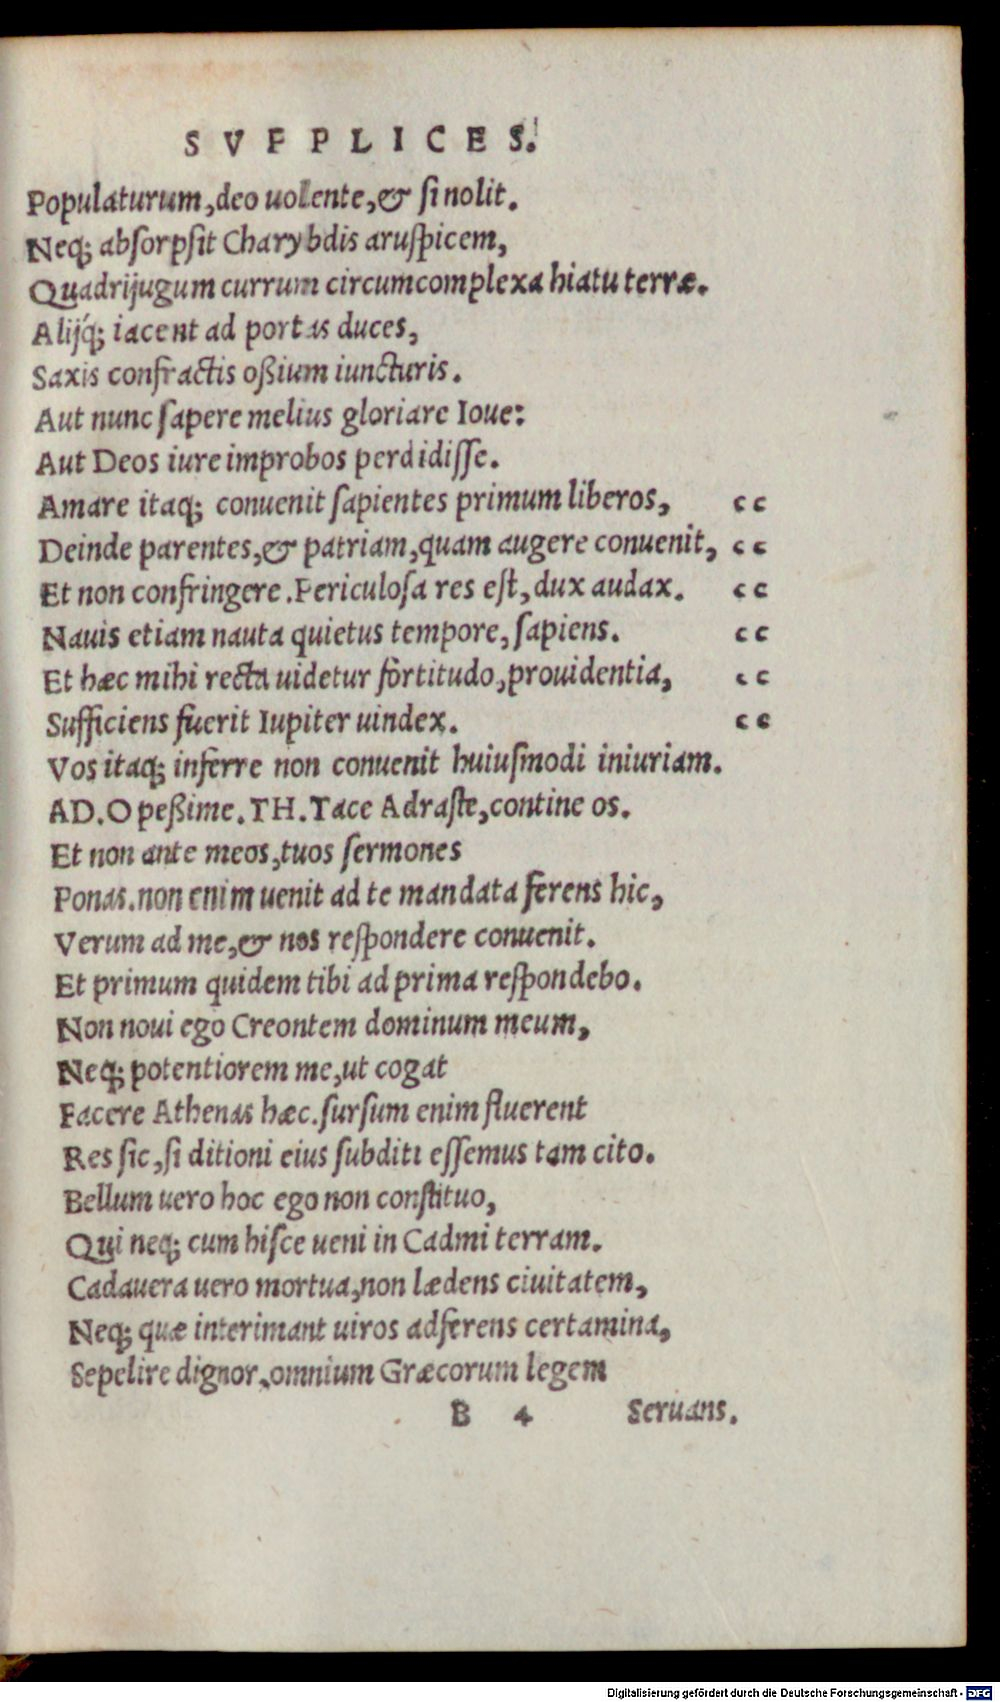 SVPPLICES.
Populaturum, deo uolente, & ſi nolit.
Neq; abſorpſit Charybdis aruſpicem,
Quadrijugum currum circumcomplexa hiatu terræ.
Alijq́; iacent ad portas duces,
Saxis confractis oßium iuncturis.
Aut nunc ſapere melius gloriare Ioue:
Aut Deos iure improbos perdidiſſe.
Amare itaq; conuenit ſapientes primum liberos, cc
Deinde parentes, & patriam, quam augere conuenit, cc
Et non confringere. Periculoſa res eſt, dux audax. cc
Nauis etiam nauta quietus tempore, ſapiens. cc
Et hæc mihi recta uidetur fortitudo, prouidentia, cc
Sufficiens fuerit Iupiter uindex. cc
Vos itaq; inferre non conuenit huiuſmodi iniuriam.
AD. O peßime. TH. Tace Adraſte, contine os.
Et non ante meos, tuos ſermones
Ponas. non enim uenit ad te mandata ferens hic,
Verum ad me, & nos reſpondere conuenit.
Et primum quidem tibi ad prima reſpondebo.
Non noui ego Creontem dominum meum,
Neq; potentiorem me, ut cogat
Facere Athenas hæc. ſurſum enim fluerent
Res ſic, ſi ditioni eius ſubditi eſſemus tam cito.
Bellum uero hoc ego non conſtituo,
Qui neq; cum hiſce ueni in Cadmi terram.
Cadauera uero mortua, non lædens ciuitatem,
Neq; quæ interimant uiros adferens certamina,
Sepelire dignor, omnium Græcorum legem
B 4 Seruans.
Digitalisierung gefördert durch die Deutsche Forschungsgemeinschaft - DFG